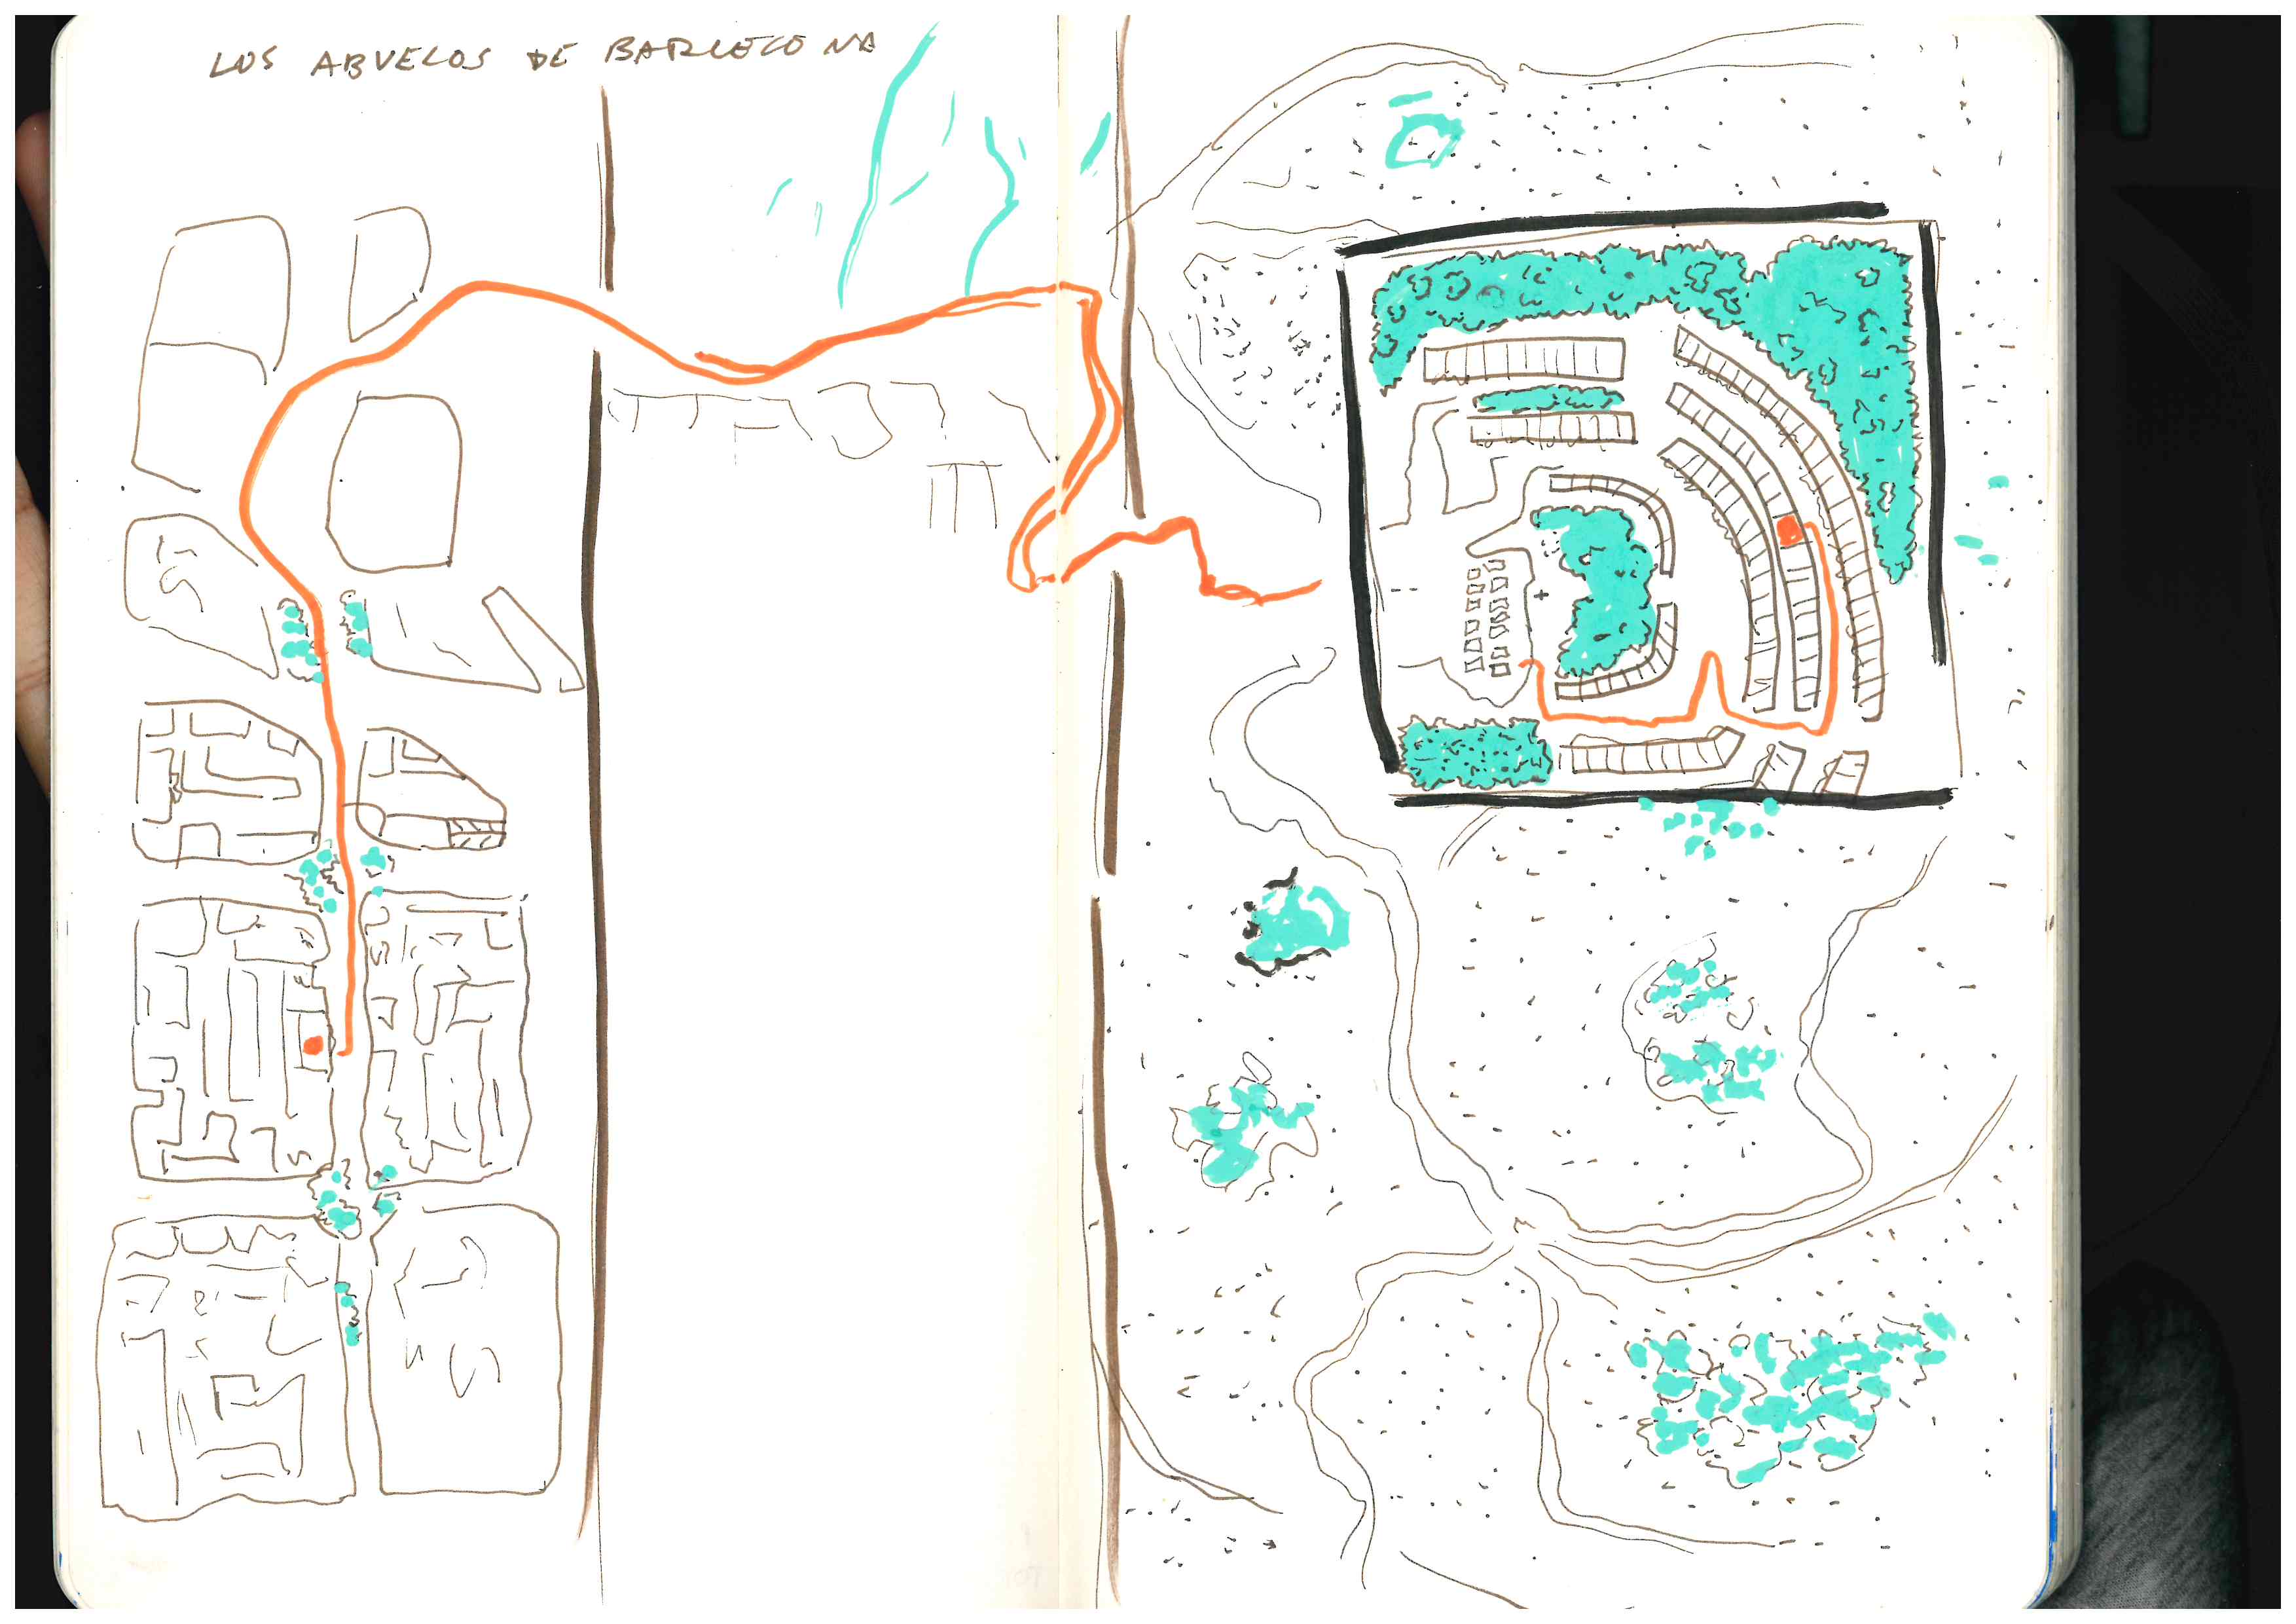 LOS ABUELOS DE BARCELONA